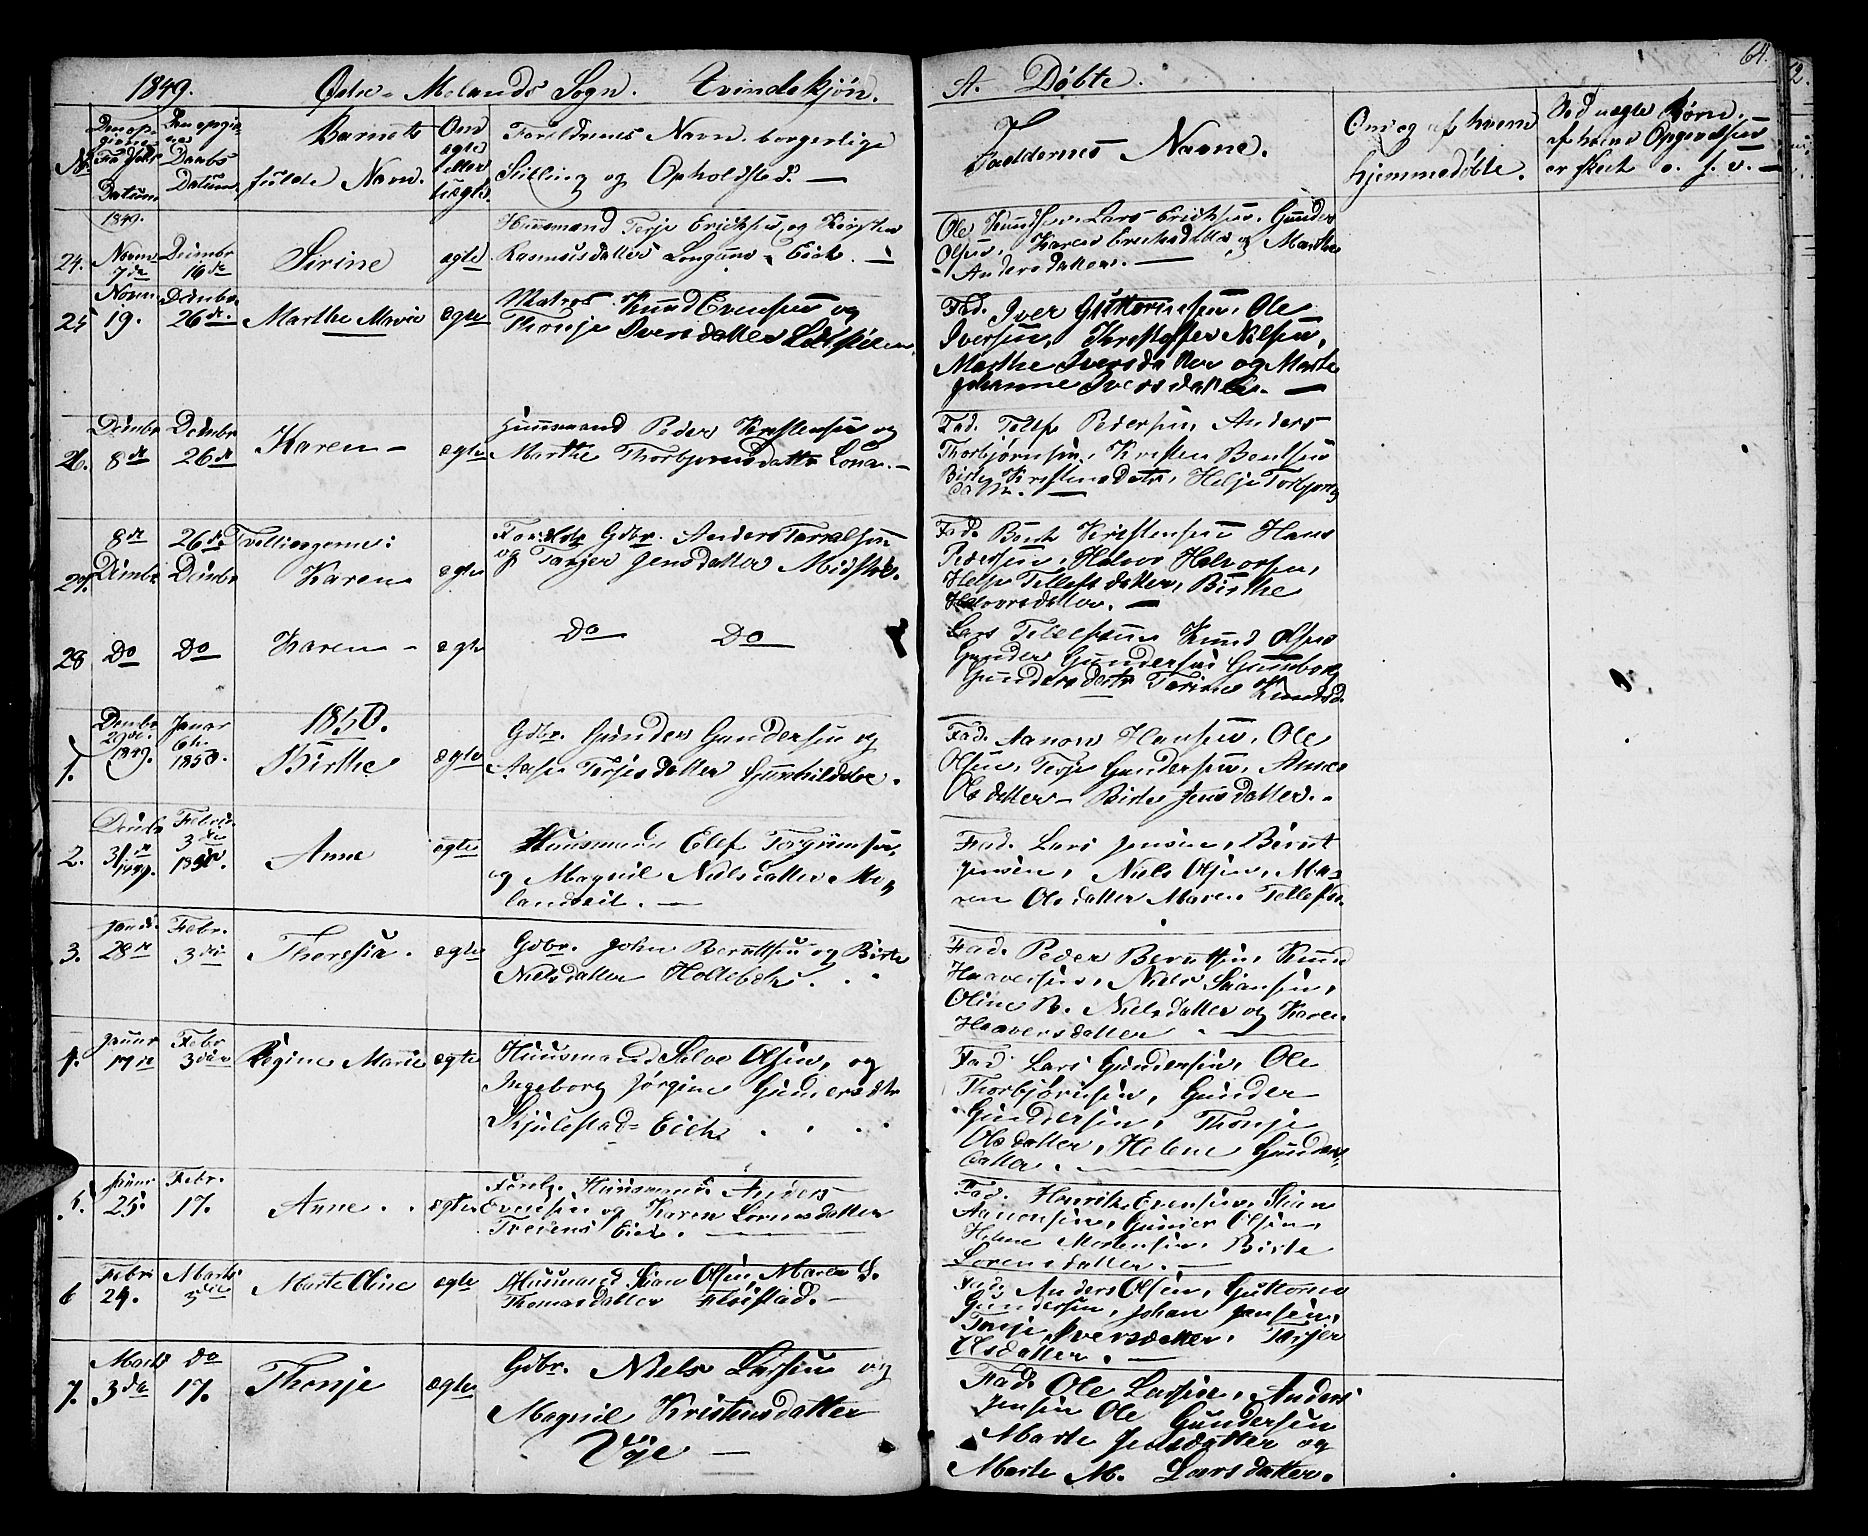 1849. Østre-Molands Sogn. Qvindekjøn. A. Døbte. 64.
No. Den opgivne Fødsels Datum
Den opgivne Daabs Datum
Barnets fulde Navn.
Om ægte eller uægte
Forældrenes Navn borgerlige
Stilling og Opholdsted. —
Faddernes Navne.
Om og af hvem
hjemmedøbte.
Ved uægte Børn,
af hvem Opgivelsen
er skeet o. s. v. —
1849.
24. Novmr 7de Decmbr 16de Sirine ægte
Huusmand Terje Erichsen og Kirsten
Rasmusdatter Longums Eie. —
Ole Knudsen Lars Erichsen, Gunder
Olsen, Karen Erichsdatter og Marthe
Andersdatter. —
25 Novm 19. Dcmbr 26de. Marthe Marie ægte
Matros Knud Evensen og
Thonje Iversdatter
Fad. Iver Guttormsen, Ole
Iversen, Kristoffer Nilsen,
Marthe Iversdatter og Marte
Johanne Iversdatter. —
26. Dcmbr 8de Dcmbr 26de Karen — ægte
Huusmand Peder Kristensen og
Marthe Thorbjørnsdatter —
Fad. Tellef Pedersen, Anders
Thorbjørnsen, Kristen Bentsen
Birte Kristensdatr, Helje Torbjørns
datr. —
27. 8de Dcmbr 26de Dcmbr Tvillingerne: Karen ægte
Foreldr Gdbr. Anders Tarralsen
og Tarjer Jensdatter Midstøl.
Fad. Bent Kristensen Hans
Pedersen, Halvor Halvorsen,
Helje Tellefsdatter, Birthe
Halvorsdatter. —
28 Do Do Karen — ægte
Do Do
Lars Tellefsen Knud Olsen
Gunder Gundersen Gunnborg
Gundersdatr Torine Knudsd.
1850.
1. Dcmbr 29de. 1849. Januar 6te 1850. Birthe ægte
Gdbr. Gunder Gundersen og
Aase Terjesdatter Gunnildsbo.
Fad. Aanon Hansen, Ole
Olsen, Terje Gundersen, Anne
Olsdatter — Birte Jensdatter.
2. Dcmbr 31de 1849. Febr. 3die 1850. Anne ægte
Huusmand Elef Torgrimsen,
og Magnil Nielsdatter Mo-
landseie. —
Fad. Lars Jensen, Bernt
Jensen, Niels Olsen, Ma-
ren Olsdatter Maren Tellefsd.
3. Jan. 28de Febr. 3die Theresia. ægte
Gdbr. John Berntsen og Birte
Nielsdatter Holtebek.
Fad. Peder Berntsen, Knud
Haaversen, Niels Stiansen,
Oline B. Nielsdatter og Karen
Haaversdatter —
4. Januar 17de Febr 3die Regine Marie ægte
Huusmand Salve Olsen, og
Ingeborg Jørgine Gundersdtr
Skjulestad-Eie.
Fad. Lars Gundersen, Ole
Thorbjørnsen, Gunder
Gundersen, Thonje
Olsdatter, Helene Gunders-
datter. —
5. Januar 25. Febr. 17. Anne. ægte
Forelr. Huusmand Anders
Evensen og Karen Sørensdatter
Treiens Eie. —
Fad. Henrik Evensen, Stian
Aanonsen, Gunder Olsen,
Helene Mortensen, Birte
Sørensdatter. —
6 Febr. 24. Marts 3die Marte Oline ægte
Huusmand Stian Olsen, Maren S.
Thomasdatter Fløistad. —
Fad. Anders Olsen, Guttorm
Gundersen, Johan Jensen,
Tonje Iversdatter, Tarjer
Olsdatter. —
7. Marts 3de do 17. Thonje ægte
Gdbr. Niels Larsen og
Magnil Kristensdatter
Vøje —
Fad. Ole Larsen, Anders
Jensen Ole Gundersen
Marte Jensdatter og
Marte M. Larsdatter.